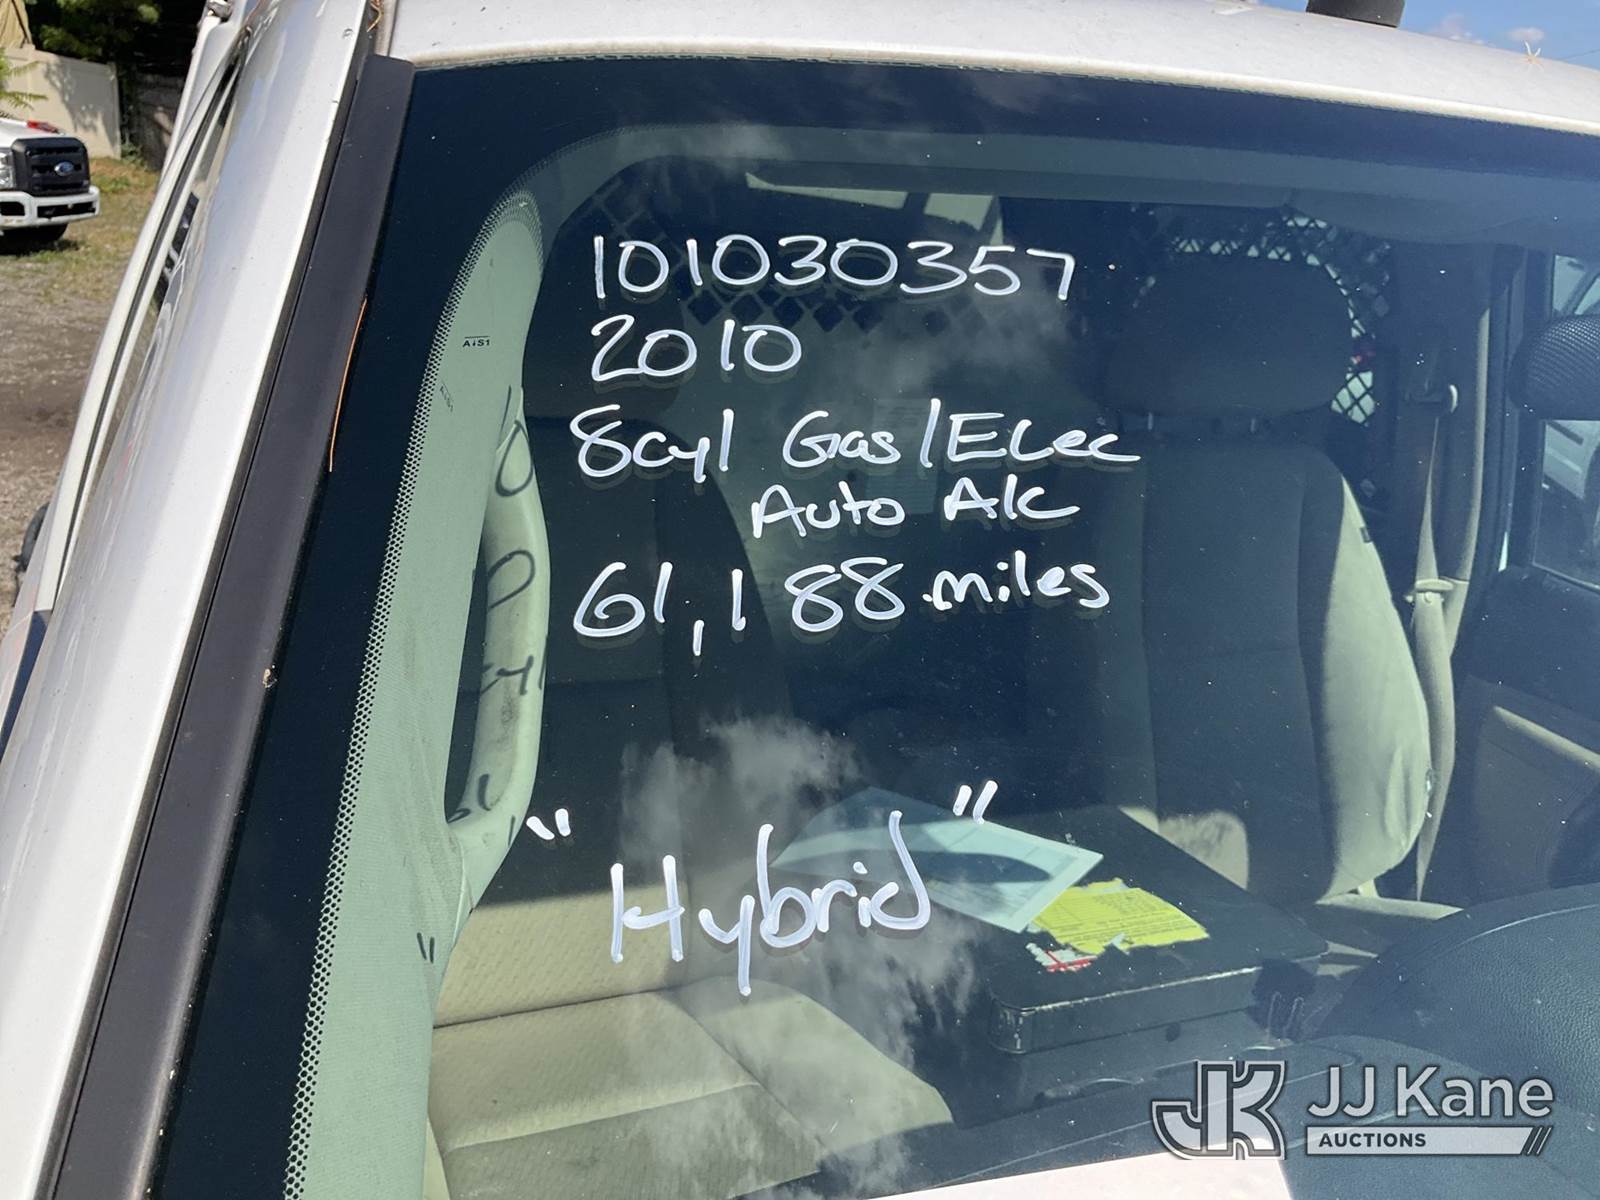 101030357
2010
8cyl Gas/Elec
Auto A/c
61,188 miles
"Hybrid"
AiS1
JJ Kane
AUCTIONS